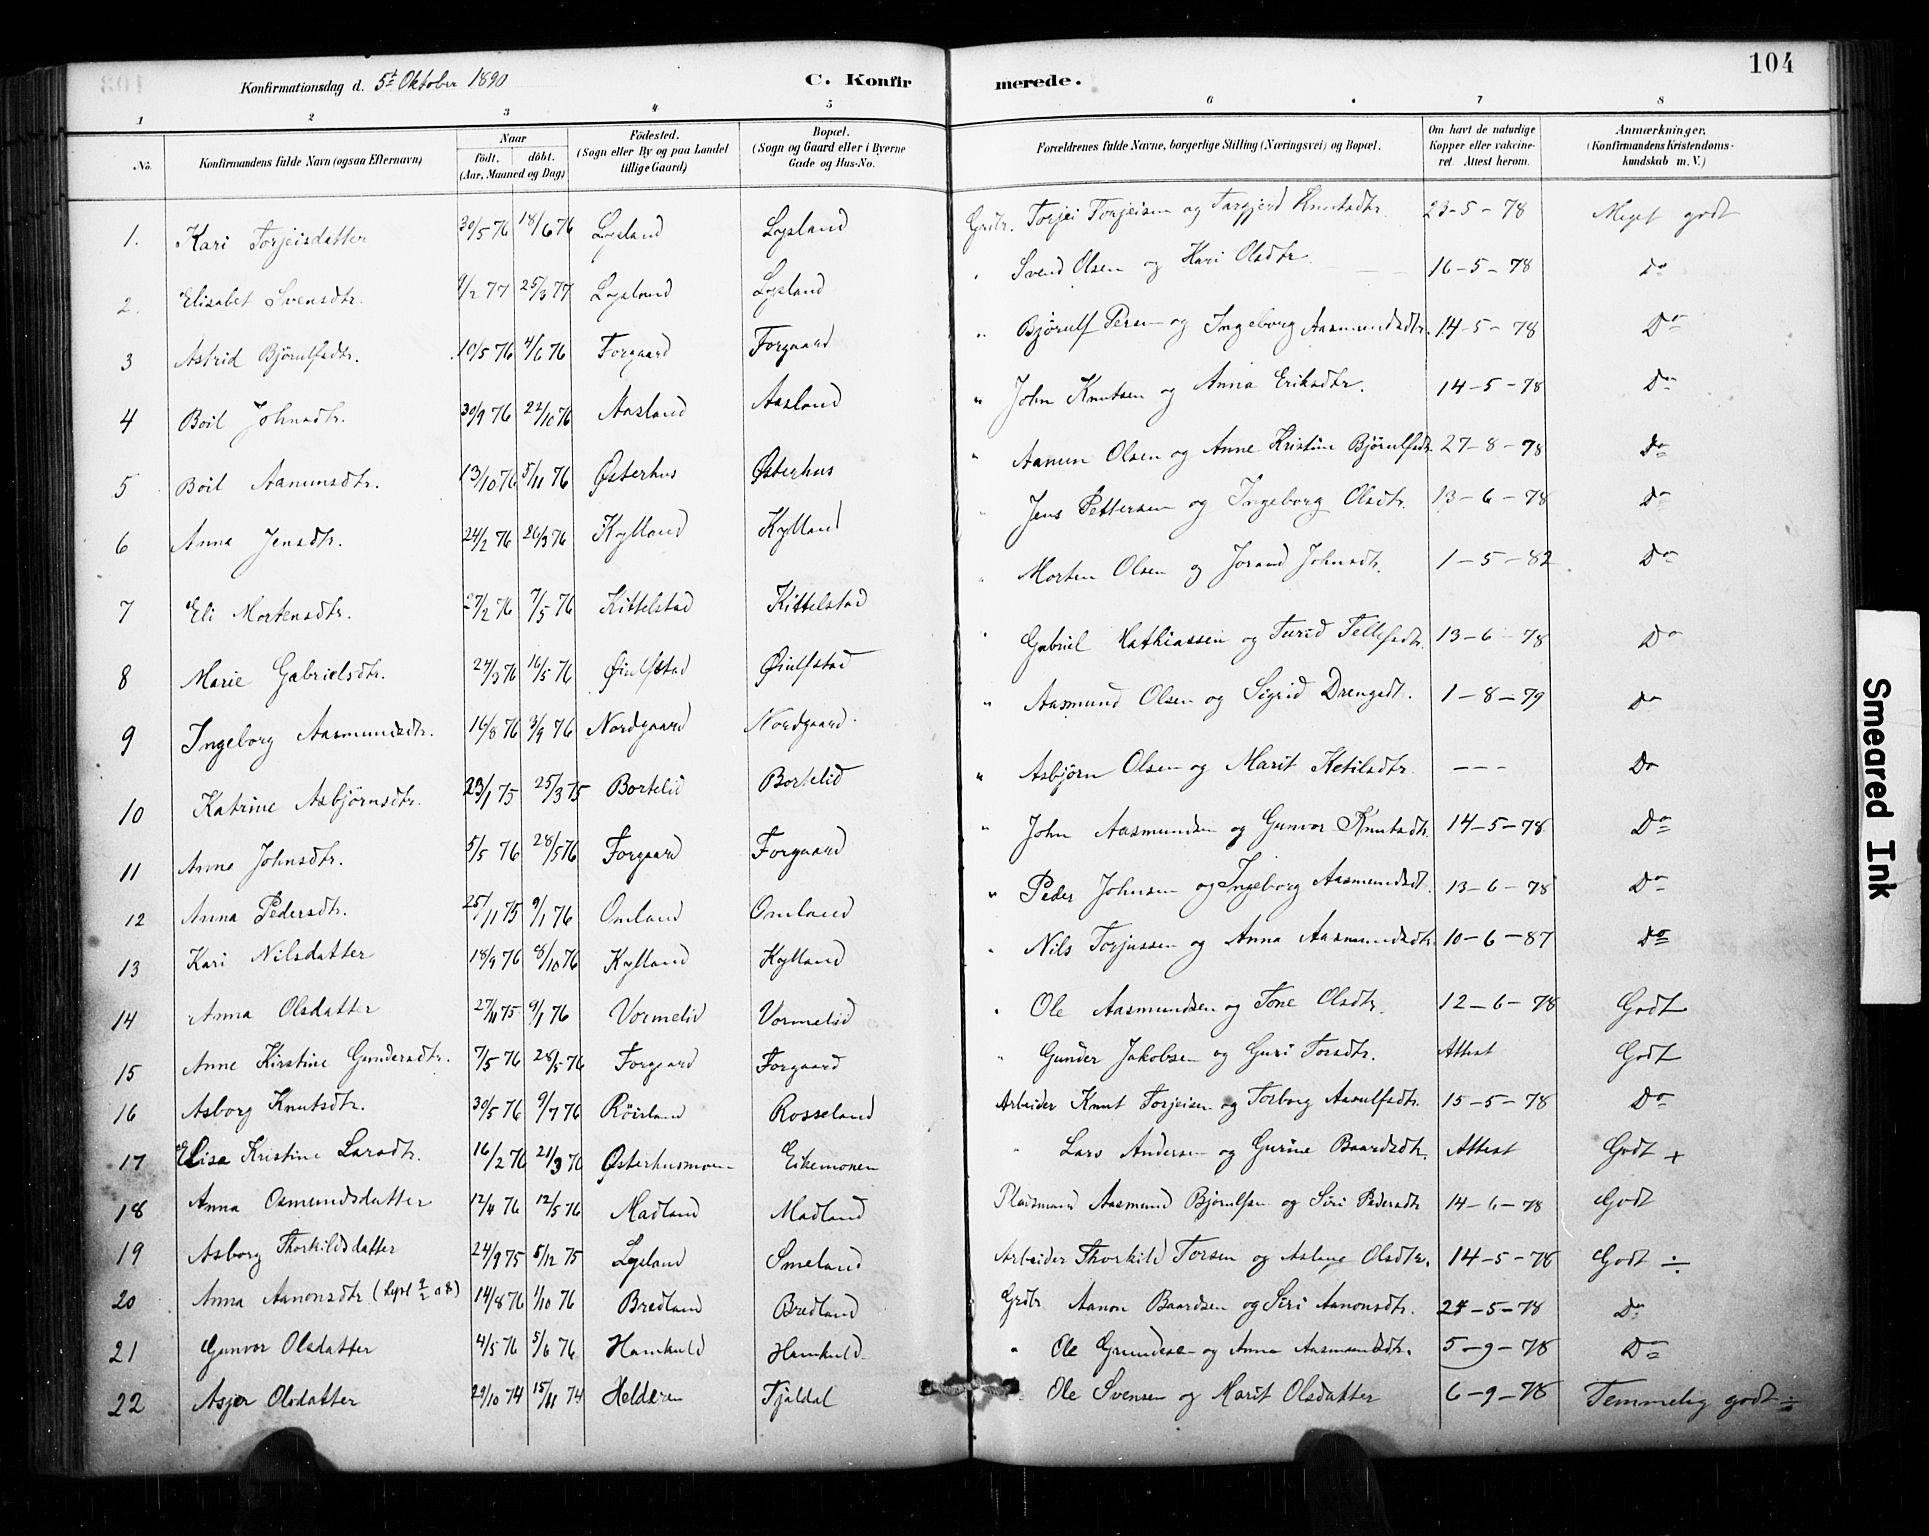 104
Konfirmationsdag d. 5t Oktober 1890 C. Konfirmerede.
1 2 3 4 5 6 7 8
No. Konfirmandens fulde Navn (ogsaa Efternavn) Naar født. døbt. (Aar, Maaned og Dag) Fødested. (Sogn eller By og paa Landet tillige Gaard) Bopæl. (Sogn og Gaard eller i Byerne Gade og Hus-No. Forældrenes fulde Navne, borgerlige Stilling (Næringsvei) og Bopæl. Om havt de naturlige Kopper eller vakcineret. Attest herom. Anmærkninger, (Konfirmandens Kristendomskundskab m. V.)
1. Kari Torjeisdatter 30/5 76 18/6 76 Logland Logland Grdbr. Torjei Torjeisen og Targjerd Knutsdtr. 23-5-78 Meget godt
2. Elisabet Svensdtr. 9/2 77 25/3 77 Logland Logland " Svend Olsen og Kari Olsdtr 16-5-78 Do
3 Astrid Bjørulfsdtr. 10/5 76 4/6 76 Forgaard Forgaard " Bjørulf Persen og Ingeborg Aasmundsdtr. 14-5-78 Do
4 Boil Johnsdtr. 30/9 76 22/10 76 Aasland Aasland " John Knutsen og Anna Eriksdtr. 14-5-78 Do
5 Boil Aanunsdtr. 13/10 76 5/11 76 Østerhus Østerhus " Aanun Olsen og Anne Kristine Bjørulfsdtr 27-8-78 Do
6 Anna Jensdtr. 24/2 76 26/3 76 Kylland Kylland " Jens Pettersen og Ingeborg Olsdtr. 13-6-78 Do
7 Eli Mortensdtr. 27/2 76 7/5 76 Kittelstad Kittelstad " Morten Olsen og Jorand Johnsdtr. 1-5-82 Do
8 Marie Gabrielsdtr. 24/3 76 16/5 76 Øiulfstad Øiulfstad " Gabriel Mathiassen og Turid Tellefsdtr. 13-6-78 Do
9 Ingeborg Aasmundsdtr. 16/8 76 3/9 76 Nordgaard Nordgaard " Aasmund Olsen og Sigrid Drengsdt. 1-8-79 Do
10 Katrine Asbjørnsdtr. 23/1 75 25/3 75 Bortelid Bortelid " Asbjørn Olsen og Marit Ketilsdtr. --- Do
11 Anne Johnsdtr. 5/5 76 28/5 76 Forgaard Forgaard " John Aasmundsen og Gunvor Knutsdtr. 14-5-78 Do
12 Anna Pedersdtr. 25/11 75 9/1 76 Omland Omland " Peder Johnsen og Ingeborg Aasmundsdt. 13-6-78 Do
13 Kari Nilsdatter 18/9 76 8/10 76 Kylland Kylland " Nils Torjussen og Anna Aasmundsdtr. 10-6-87 Do
14 Anna Olsdatter 27/11 75 9/1 76 Vormelid Vormelid " Ole Aasmundsen og Tone Olsdtr. 12-6-78 Godt
15 Anne Kirstine Gundersdtr. 7/5 76 28/5 76 Forgaard Forgaard " Gunder Jakobsen og Guri Torsdtr. Attest Godt
16 Asborg Knutsdtr. 30/5 76 9/7 76 Røisland Rosseland Arbeider Knut Torjeisen og Torborg Aasulfsdtr. 15-5-78 Do
17 Elise Kristine Larsdtr. 16/2 76 21/3 76 Østerhusmoen Eikemonen " Lars Andersen og Gurine Baardsdtr. Attest Godt +
18 Anna Osmundsdatter 12/4 76 12/5 76 Madland Madland Pladsmand Aasmund Bjørulfsen og Siri Pedersdtr 14-6-78 Godt
19 Asborg Thorkildsdatter 24/9 75 5/12 75 Logland Smeland Arbeider Thorkild Torsen og Aslaug Olsdtr. 14-5-78 Godt ÷
20 Anna Aanonsdtr 14/8 76 1/10 76 Bredland Bredland Grdbr Aanon Baardsen og Siri Aanonsdtr. 24-5-78 Do
21 Gunvor Olsdatter 4/5 76 5/6 76 Homkuld Homkuld " Ole Gundersen og Anna Aasmundsdtr. 5-9-78 Do
22 Asjer Olsdatter 29/10 74 15/11 74 Helderen Tjaldal " Ole Svensen og Marit Olsdatter 6-9-78 Temmelig godt ÷
Smeared Ink